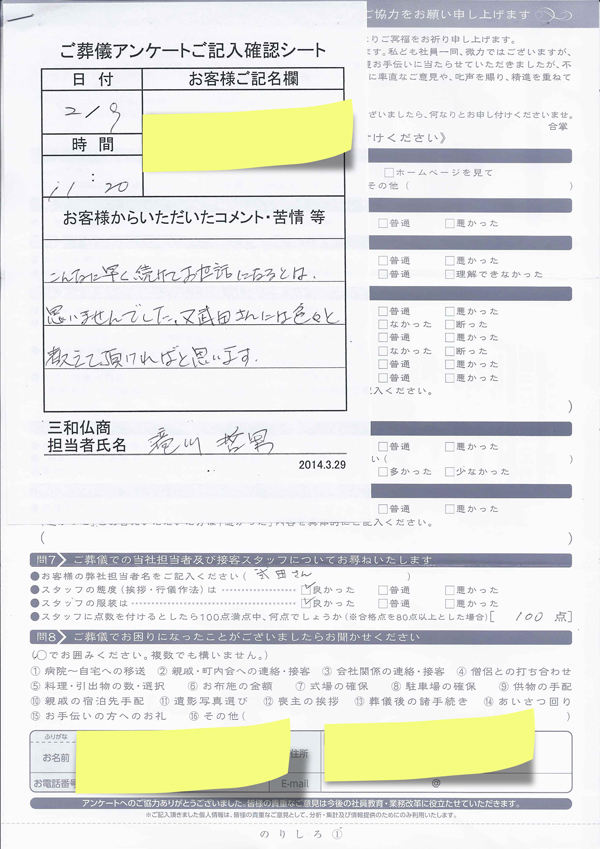 ご協力をお願い申し上げます
りご冥福をお祈り申し上げます。
ます。私ども社員一同、微力ではございますが、
お手伝いに当たらせていただきましたが、不
に率直なご意見や、叱声を賜り、精進を重ねて
ざいましたら、何なりとお申し付けくださいませ。
合掌
けください》
□ホームページを見て
その他( )
□普通 □悪かった
□普通 □悪かった
□普通 □理解できなかった
□普通 □悪かった
□なかった □断った
□普通 □悪かった
□なかった □断った
□普通 □悪かった
□普通 □悪かった
記入ください。
)
□普通 □悪かった
い( )
□多かった □少なかった
□普通 □悪かった
ご葬儀アンケートご記入確認シート
日付 お客様ご記名欄
2/9
時間
11:20
お客様からいただいたコメント・苦情 等
こんなに早く続けてお世話になるとは、
思いませんでした。又武田さんには色々と
教えて頂ければと思います。
三和仏商
担当者氏名 滝川 哲男
2014.3.29
( )
問7 ご葬儀での当社担当者及び接客スタッフについてお尋ねいたします
●お客様の弊社担当者名をご記入ください( 武田さん )
●スタッフの態度(挨拶・行儀作法)は ☑良かった □普通 □悪かった
●スタッフの服装は ☑良かった □普通 □悪かった
●スタッフに点数を付けるとしたら100点満点中、何点でしょうか(※合格点を80点以上とした場合)[ 100 点]
問8 ご葬儀でお困りになったことがございましたらお聞かせください
(○でお囲みください。複数でも構いません。)
① 病院〜自宅への移送 ② 親戚・町内会への連絡・接客 ③ 会社関係の連絡・接客 ④ 僧侶との打ち合わせ
⑤ 料理・引出物の数・選択 ⑥ お布施の金額 ⑦ 式場の確保 ⑧ 駐車場の確保 ⑨ 供物の手配
⑩ 親戚の宿泊先手配 ⑪ 遺影写真選び ⑫ 喪主の挨拶 ⑬ 葬儀後の諸手続き ⑭ あいさつ回り
⑮ お手伝いの方へのお礼 ⑯ その他( )
ふりがな
お名前 住所
お電話番号 E-mail @
アンケートへのご協力ありがとうございました。皆様の貴重なご意見は今後の社員教育・業務改革に役立たせていただきます。
※ご記入頂きました個人情報は、皆様の貴重なご意見として、分析・集計及び情報提供のためにのみ利用いたします。
のりしろ①